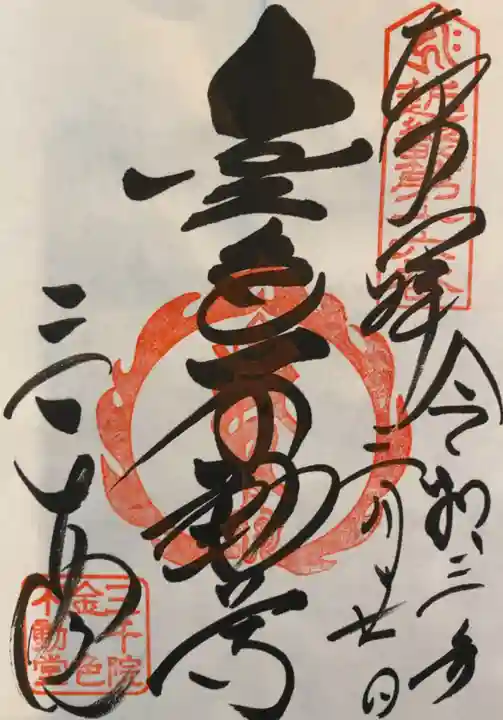 奉拝
令和三年
三月廿日
金色不動尊
三千院
三千院
金色
不動堂